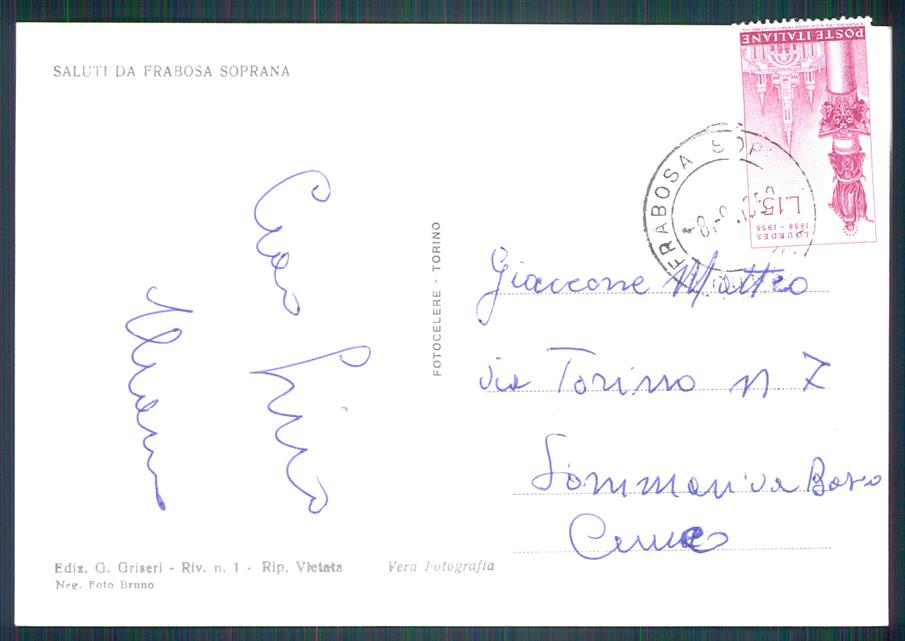 SALUTI DA FRABOSA SOPRANA
POSTE ITALIANE
L.15
LOURDES
1858 - 1958
FRABOSA SOP
Ciao
FOTOCELERE - TORINO
Giaccone Matteo
via Torino n. 7
Sommariva Bosco
Cuneo
Ediz. G. Griseri - Riv. n. 1 - Rip. Vietata
Vera Fotografia
Neg. Foto Bruno